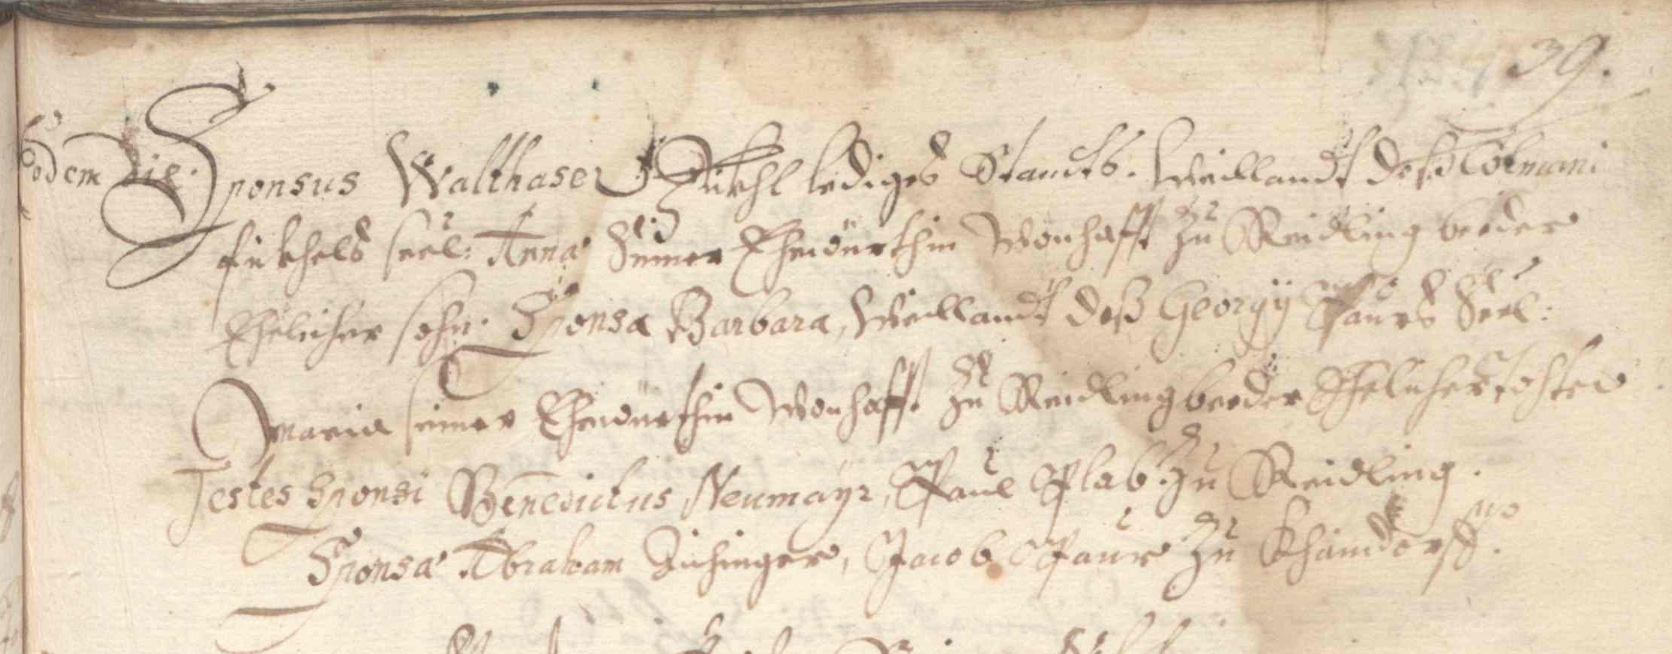 39.
Eodem die. Sponsus Walthaser Fükhl lediges Standts. Weillandt deß Colmani
fükhels seel: Anna Seiner Ehewürthin Wonhafft zu Reidling beeder
Ehelicher sohn. Sponsa Barbara, Weillandt deß Georgÿ Paurs Seel:
Maria seiner Ehewürthin Wonhafft zu Reidling beeder Ehelicher tochter
Testes Sponsi Benedictus Neumayr, Paul Plab zu Reidling.
Sponsa Abraham Zichinger, Jacob Paur zu